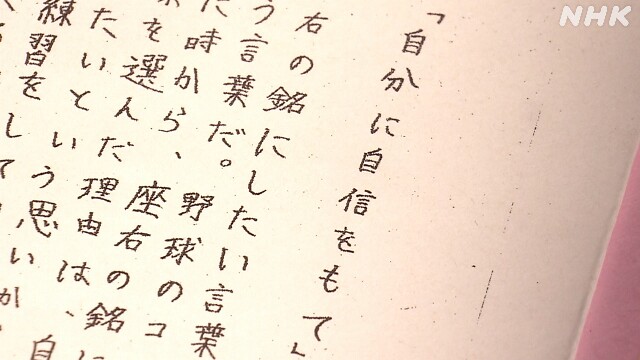 「自分に自信をもて」
右の銘にしたい言葉
う言葉だ。野球のコ
た時から、座右の銘に
を選んだ理由は、
たいという思いが、自
練習をして
NHK